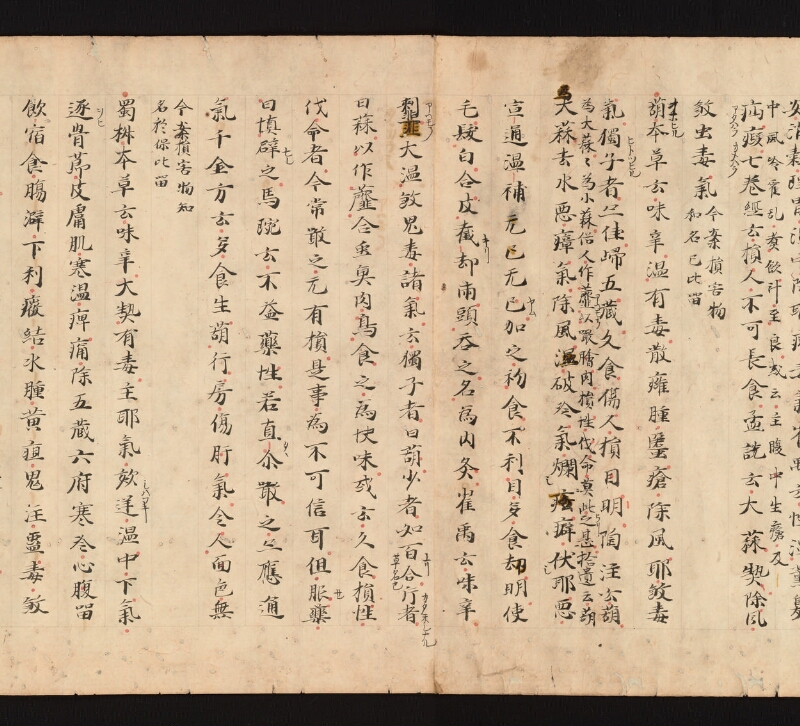 病瘕七卷經云損人不可長食孟詵云大蒜熱除風
煞虫毒氣 今案損害物知名已此留
葫本草云味辛温有毒散癰腫䘌瘡除風耶煞毒
氣獨子者亦佳歸五藏久食傷人損目明陶注云葫
為大蒜蒜為小蒜俗人作齏以噉膾肉損性伐命莫此之甚拾遺云葫
大蒜去水惡瘴氣除風濕破冷氣爛痃癖伏耶惡
宣通温補无已无已加之初食不利目多食却明使
毛髮白合皮截却兩頭吞之名為內灸崔禹云味辛
大温煞鬼毒諸氣云獨子者曰葫少者如百合片者
曰蒜以作齏合魚臭肉鳥食之為快味或云久食損性
伐命者今常噉之无有損是事為不可信耳但服藥
曰慎辟之馬琬云不益藥性若直尒噉之亦應通
氣千金方云多食生葫行房傷肝氣令人面色無
今案損害物知名於保比留
蜀椒本草云味辛大熱有毒主耶氣欬逆温中下氣
逐骨節皮膚肌寒温痺痛除五藏六府寒冷心腹留
飲宿食腸澼下利癥結水腫黃疸鬼注蠱毒煞